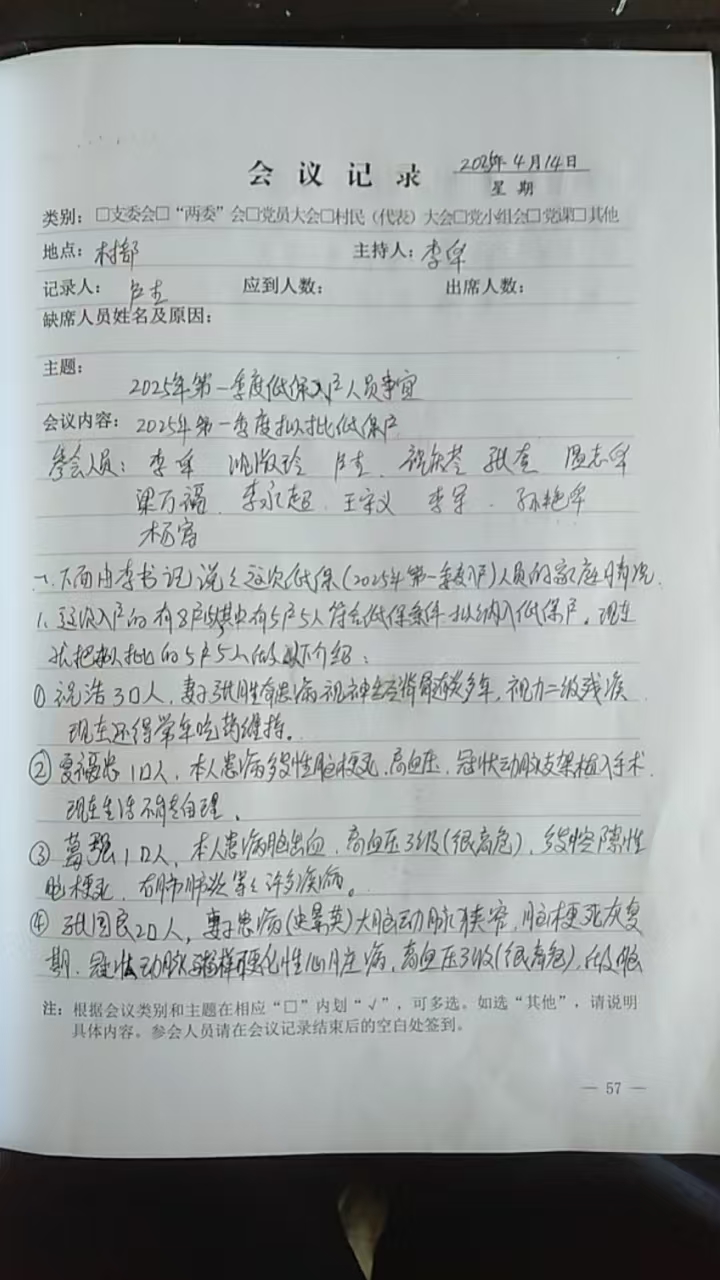 会议记录 2025年4月14日
星期
类别：□支委会□“两委”会□党员大会□村民（代表）大会□党小组会□党课□其他
地点：村部 主持人：李
记录人： 应到人数： 出席人数：
缺席人员姓名及原因：
主题：
2025年第一季度低保入户人员事宜
会议内容：2025年第一季度拟批低保户
参会人员：李 张 志
梁万福 李永超 王宗义 李军 孙艳
杨
一、下面由李书记说说这次低保(2025年第一季入户)人员的家庭情况
1、这次入户的有8户 其中有5户5人符合低保条件拟纳入低保户，现在
我把拟批的5户5人做以下介绍：
①祝浩3口人，妻子张胜 患病视神经 多年，视力二级残疾
现在还得常年吃药维持。
② 1口人，本人患病多发性脑梗死、高血压、冠状动脉支架植入手术
现在生活不能自理。
③ 强1口人，本人患病脑出血、高血压3级(很高危)、多发腔隙性
脑梗死、右肺肺炎等等许多疾病。
④张国民2口人，妻子患病(史景英)大脑动脉狭窄，脑梗死恢复
期、冠状动脉粥样硬化性心脏病，高血压3级(很高危)，
注：根据会议类别和主题在相应“□”内划“√”，可多选。如选“其他”，请说明
具体内容。参会人员请在会议记录结束后的空白处签到。
— 57 —